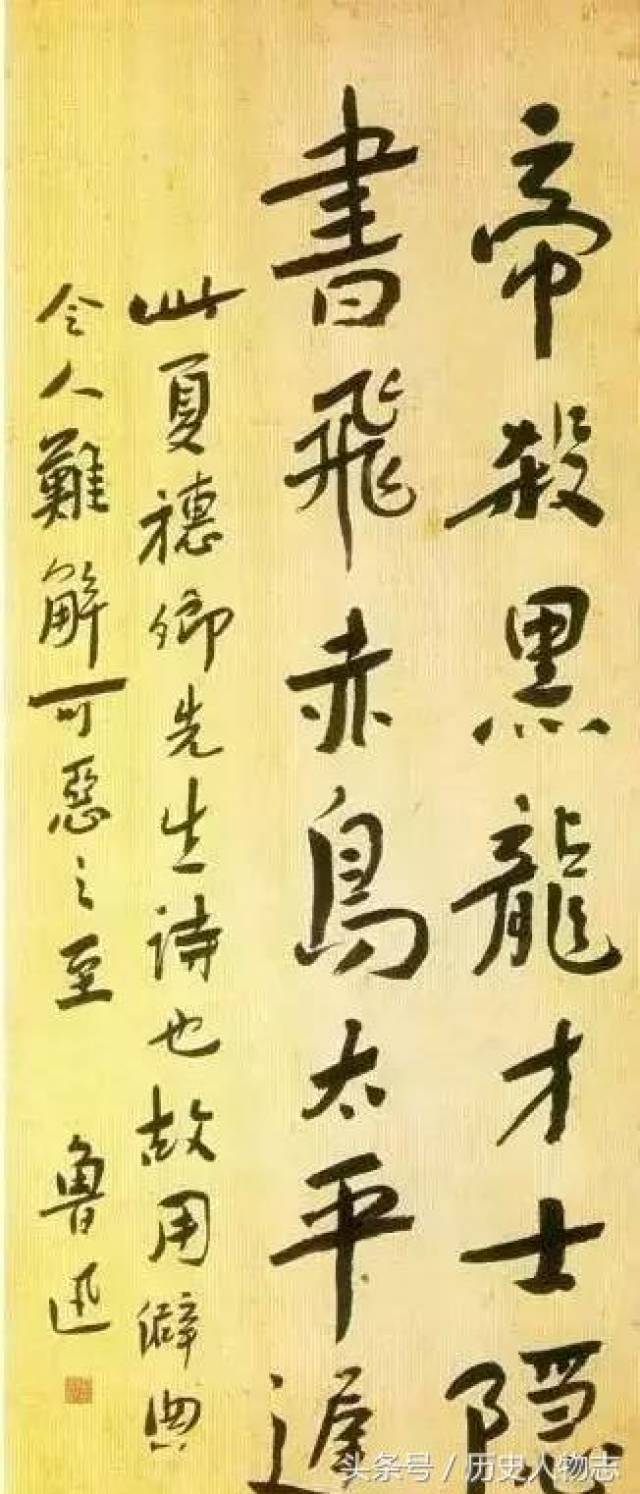 帝殺黑龍才士隱
書飛赤鳥太平遲
此夏穗卿先生詩也故用僻典
令人難解可惡之至
魯迅
头条号 / 历史人物志